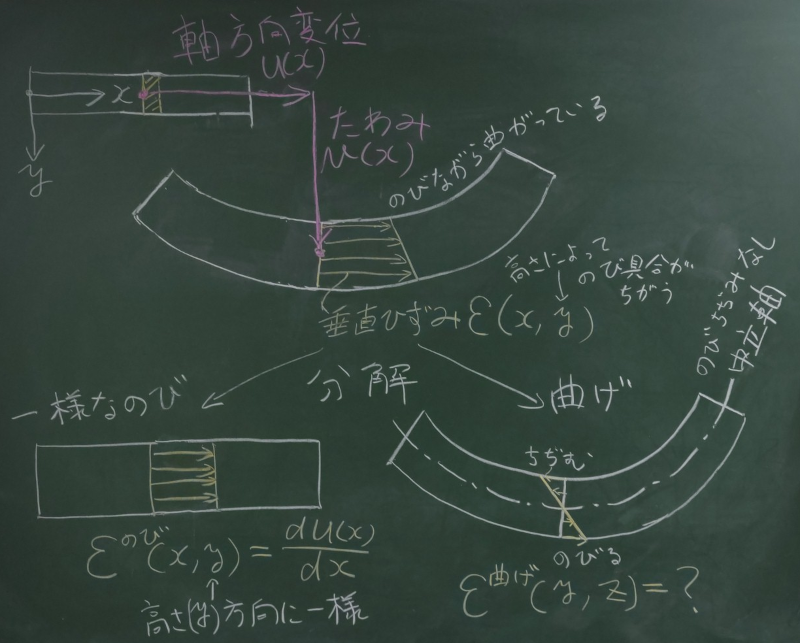 軸方向変位
U(x)
x
y
たわみ
u(x)
のびながら曲がっている
高さによって
のび具合が
ちがう
垂直ひずみ ε(x, y)
のびちぢみなし
中立軸
分解
一様なのび
曲げ
ちぢむ
のびる
ε^のび(x, y) = dU(x)/dx
高さ(y)方向に一様
ε^曲げ(y, z) = ?